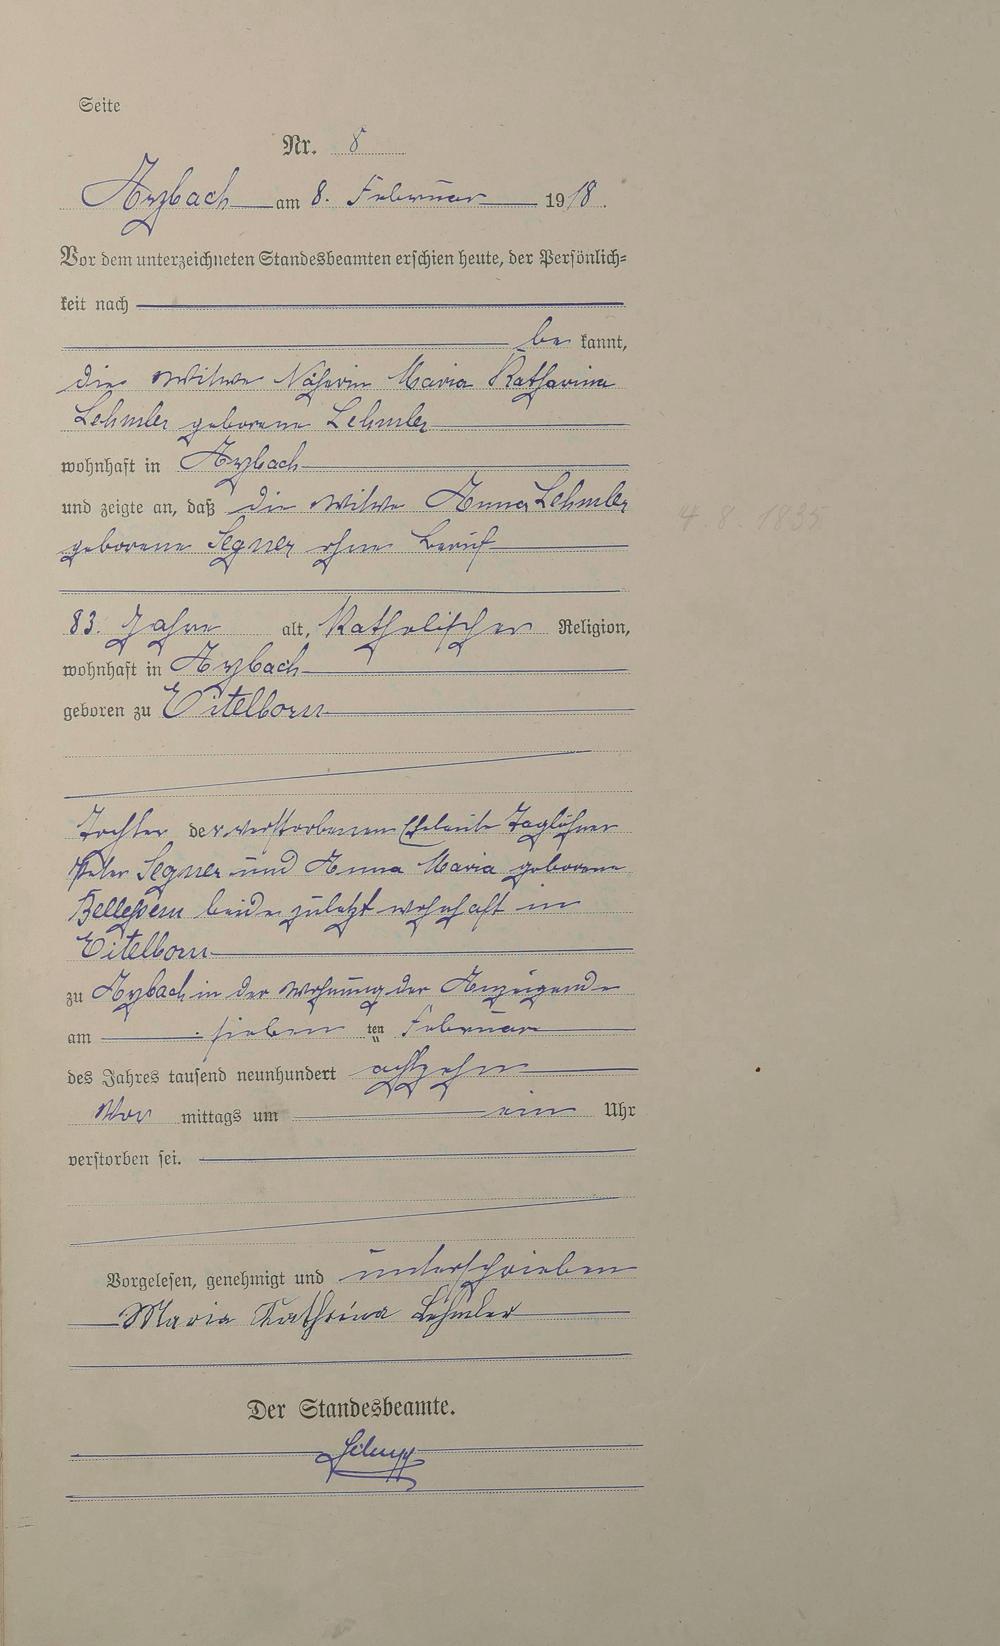 Seite
Nr. 8
Arzbach am 8. Februar 1918.
Vor dem unterzeichneten Standesbeamten erschien heute, der Persönlich-
keit nach
be kannt,
die Witwe Näherin Maria Katharina
Lehmler geborene Lehmler
wohnhaft in Arzbach
und zeigte an, daß die Witwe Anna Lehmler
geborene Segner ohne Beruf
4. 8. 1835
83. Jahre alt, Katholischer Religion,
wohnhaft in Arzbach
geboren zu Eitelborn
Tochter der verstorbenen Eheleute Taglöhner
Peter Segner und Anna Maria geborene
beide zuletzt wohnhaft in
Eitelborn
zu Arzbach in der Wohnung der Anzeigende
am sieben ten Februar
des Jahres tausend neunhundert achtzehn
Vor mittags um ein Uhr
verstorben sei.
Vorgelesen, genehmigt und unterschrieben
Maria Kathrina Lehmler
Der Standesbeamte.